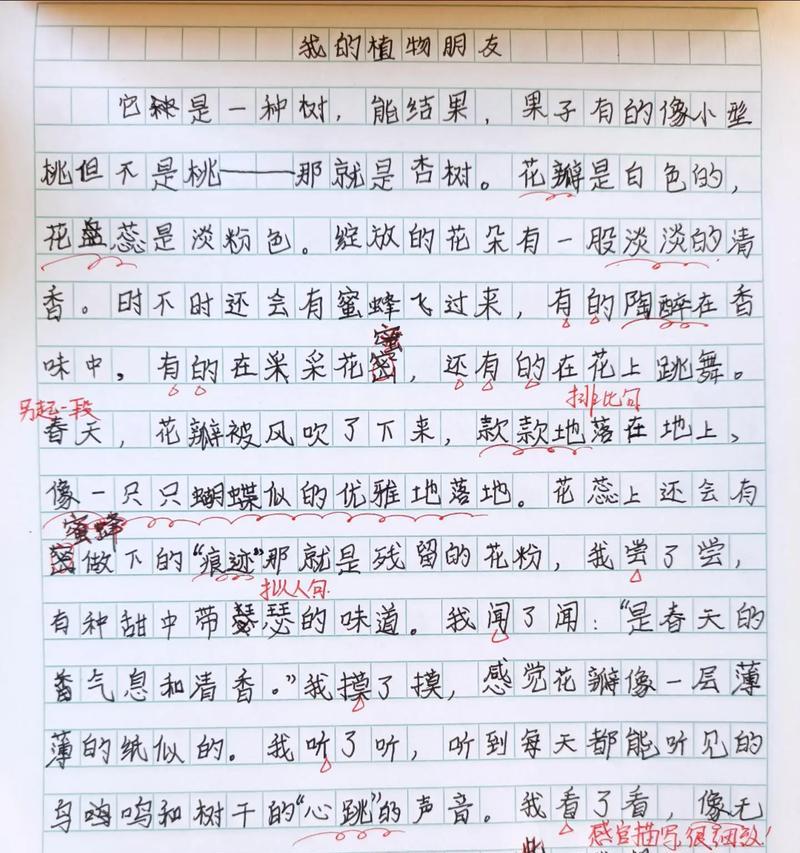 我的植物朋友
它是一种树，能结果，果子有的像小型
桃但不是桃——那就是杏树。花瓣是白色的，
花蕊是淡粉色。绽放的花朵有一股淡淡的清
香。时不时还会有蜜蜂飞过来，有的陶醉在香
味中，有的在采采花蜜，还有的在花上跳舞。
排比句
另起一段
春天，花瓣被风吹了下来，款款地落在地上、
像一只只蝴蝶似的优雅地落地。花蕊上还会有
蜜蜂做下的“痕迹”那就是残留的花粉，我尝了尝，
拟人句
有种甜中带瑟的味道。我闻了闻：“是春天的
气息和清香。”我摸了摸，感觉花瓣像一层薄
薄的纸似的。我听了听，听到每天都能听见的
鸟鸣和树干的“心跳”的声音。我看了看，像无
感官描写，很细致！